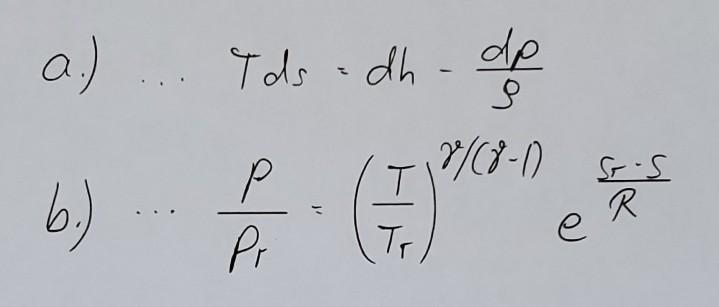 a.) ... Tds = dh - dp/ρ
b.) ... p/pr = (T/Tr)^γ/(γ-1) e^(sr-s)/R